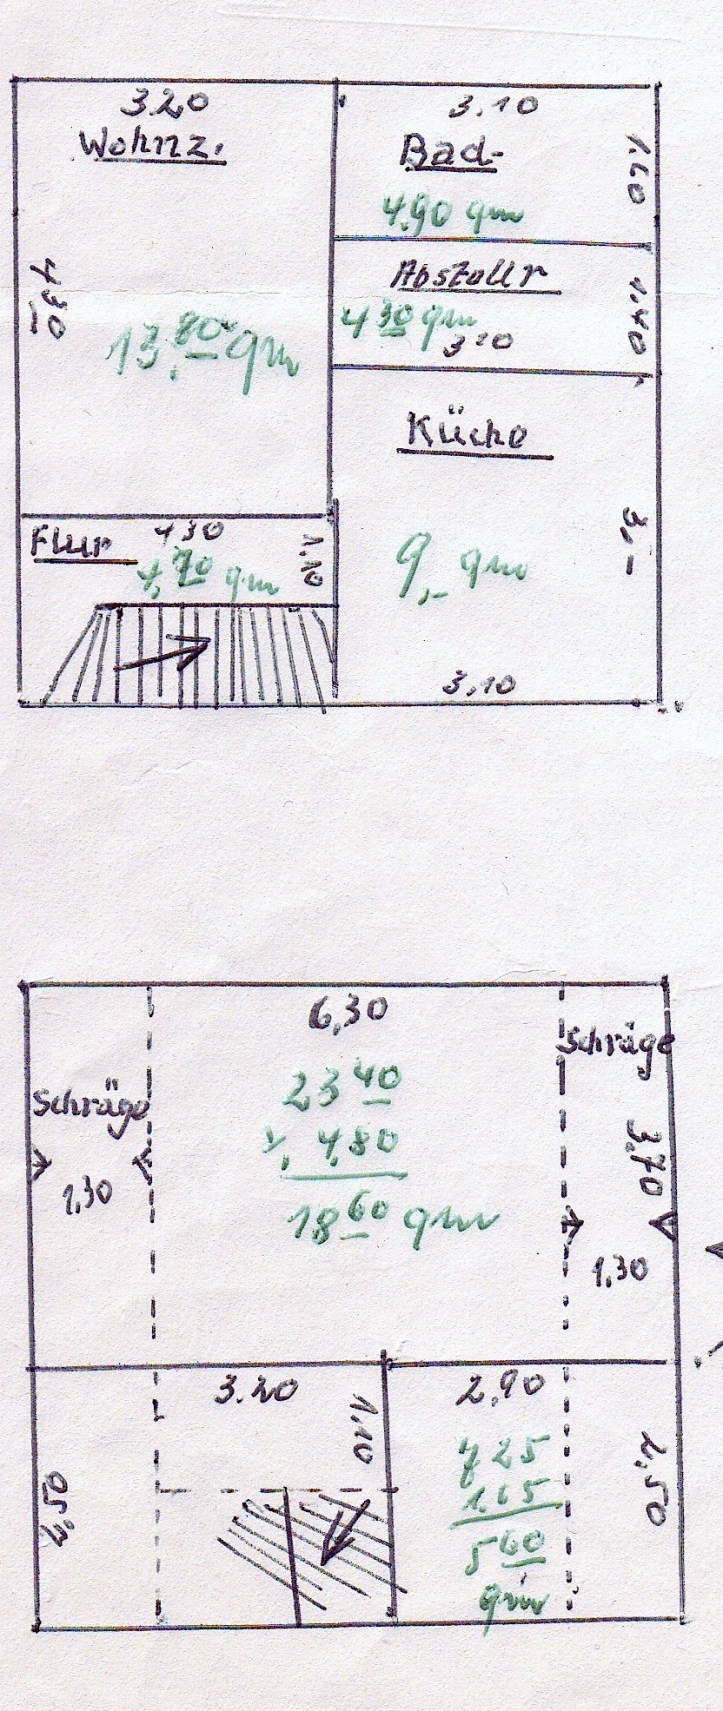 3.20
Wohnz.
4 30
13.80 qm
3.10
Bad-
1.60
4.90 qm
Abstellr
1.40
4 30 qm
3 10
Küche
3,-
9,- qm
3,10
Flur
4 30
1.10
4,70 qm
6,30
Schräge
Schräge
23 40
4,80
18 60 qm
3,70
1,30
1,30
3.20
1,10
2,90
7 25
1.65
5 60
qm
2,50
2,50